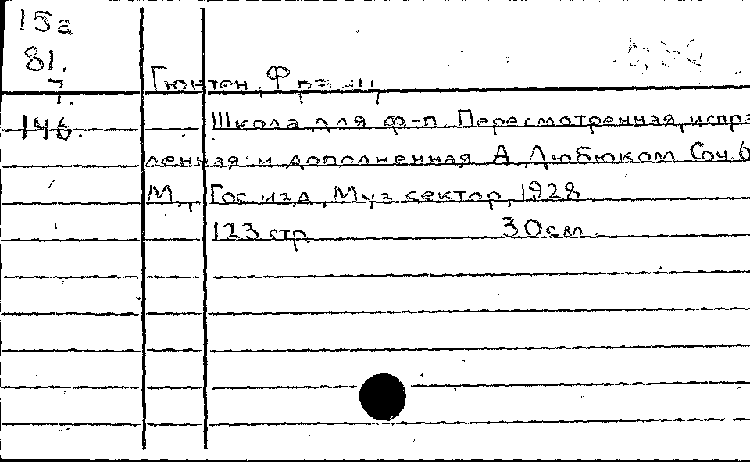 15а
81.
7.
Гюнтен, Франц
146.
Школа для ф-п. Пересмотренная, испра
ленная и дополненная А. Дюбюком Соч. 6
М., Гос. изд., Муз. сектор, 1928
123 стр. 30 см.